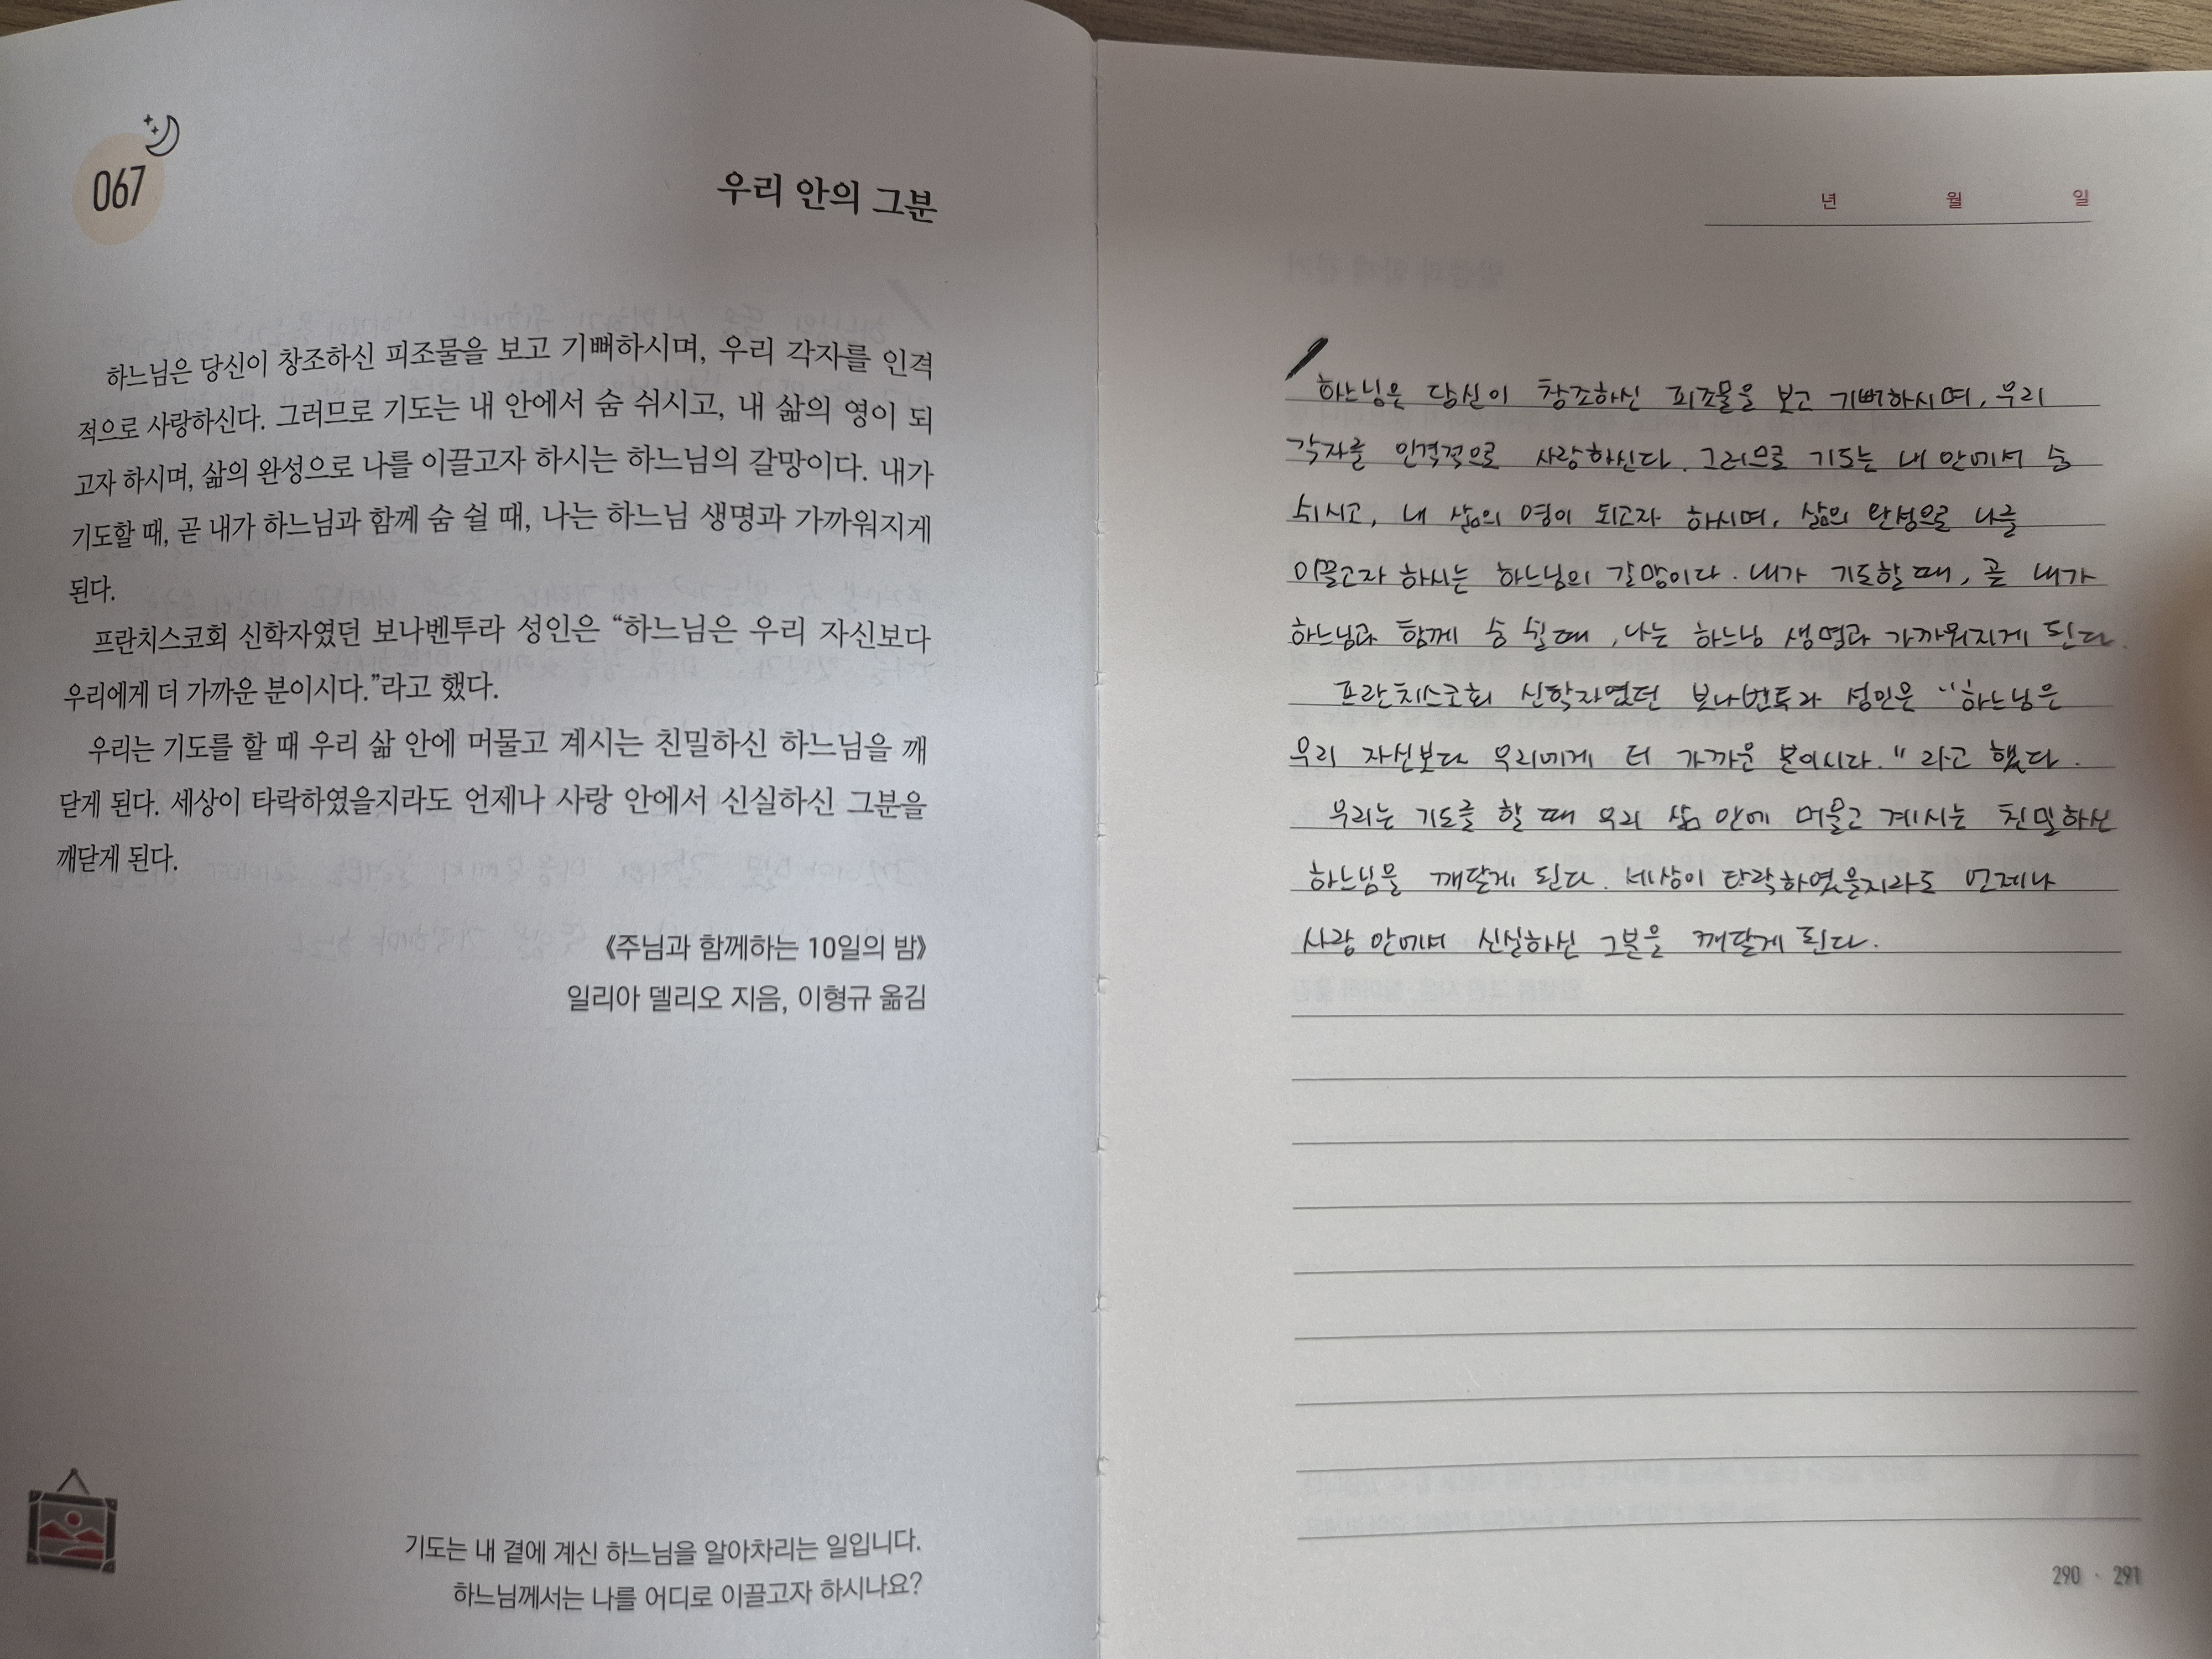 067
우리 안의 그분
하느님은 당신이 창조하신 피조물을 보고 기뻐하시며, 우리 각자를 인격
적으로 사랑하신다. 그러므로 기도는 내 안에서 숨 쉬시고, 내 삶의 영이 되
고자 하시며, 삶의 완성으로 나를 이끌고자 하시는 하느님의 갈망이다. 내가
기도할 때, 곧 내가 하느님과 함께 숨 쉴 때, 나는 하느님 생명과 가까워지게
된다.
프란치스코회 신학자였던 보나벤투라 성인은 “하느님은 우리 자신보다
우리에게 더 가까운 분이시다.”라고 했다.
우리는 기도를 할 때 우리 삶 안에 머물고 계시는 친밀하신 하느님을 깨
닫게 된다. 세상이 타락하였을지라도 언제나 사랑 안에서 신실하신 그분을
깨닫게 된다.
《주님과 함께하는 10일의 밤》
일리아 델리오 지음, 이형규 옮김
기도는 내 곁에 계신 하느님을 알아차리는 일입니다.
하느님께서는 나를 어디로 이끌고자 하시나요?
년 월 일
하느님은 당신이 창조하신 피조물을 보고 기뻐하시며, 우리
각자를 인격적으로 사랑하신다. 그러므로 기도는 내 안에서 숨
쉬시고, 내 삶의 영이 되고자 하시며, 삶의 완성으로 나를
이끌고자 하시는 하느님의 갈망이다. 내가 기도할 때, 곧 내가
하느님과 함께 숨 쉴 때, 나는 하느님 생명과 가까워지게 된다.
프란치스코회 신학자였던 보나벤투라 성인은 "하느님은
우리 자신보다 우리에게 더 가까운 분이시다." 라고 했다.
우리는 기도를 할 때 우리 삶 안에 머물고 계시는 친밀하신
하느님을 깨닫게 된다. 세상이 타락하였을지라도 언제나
사랑 안에서 신실하신 그분을 깨닫게 된다.
290 · 291